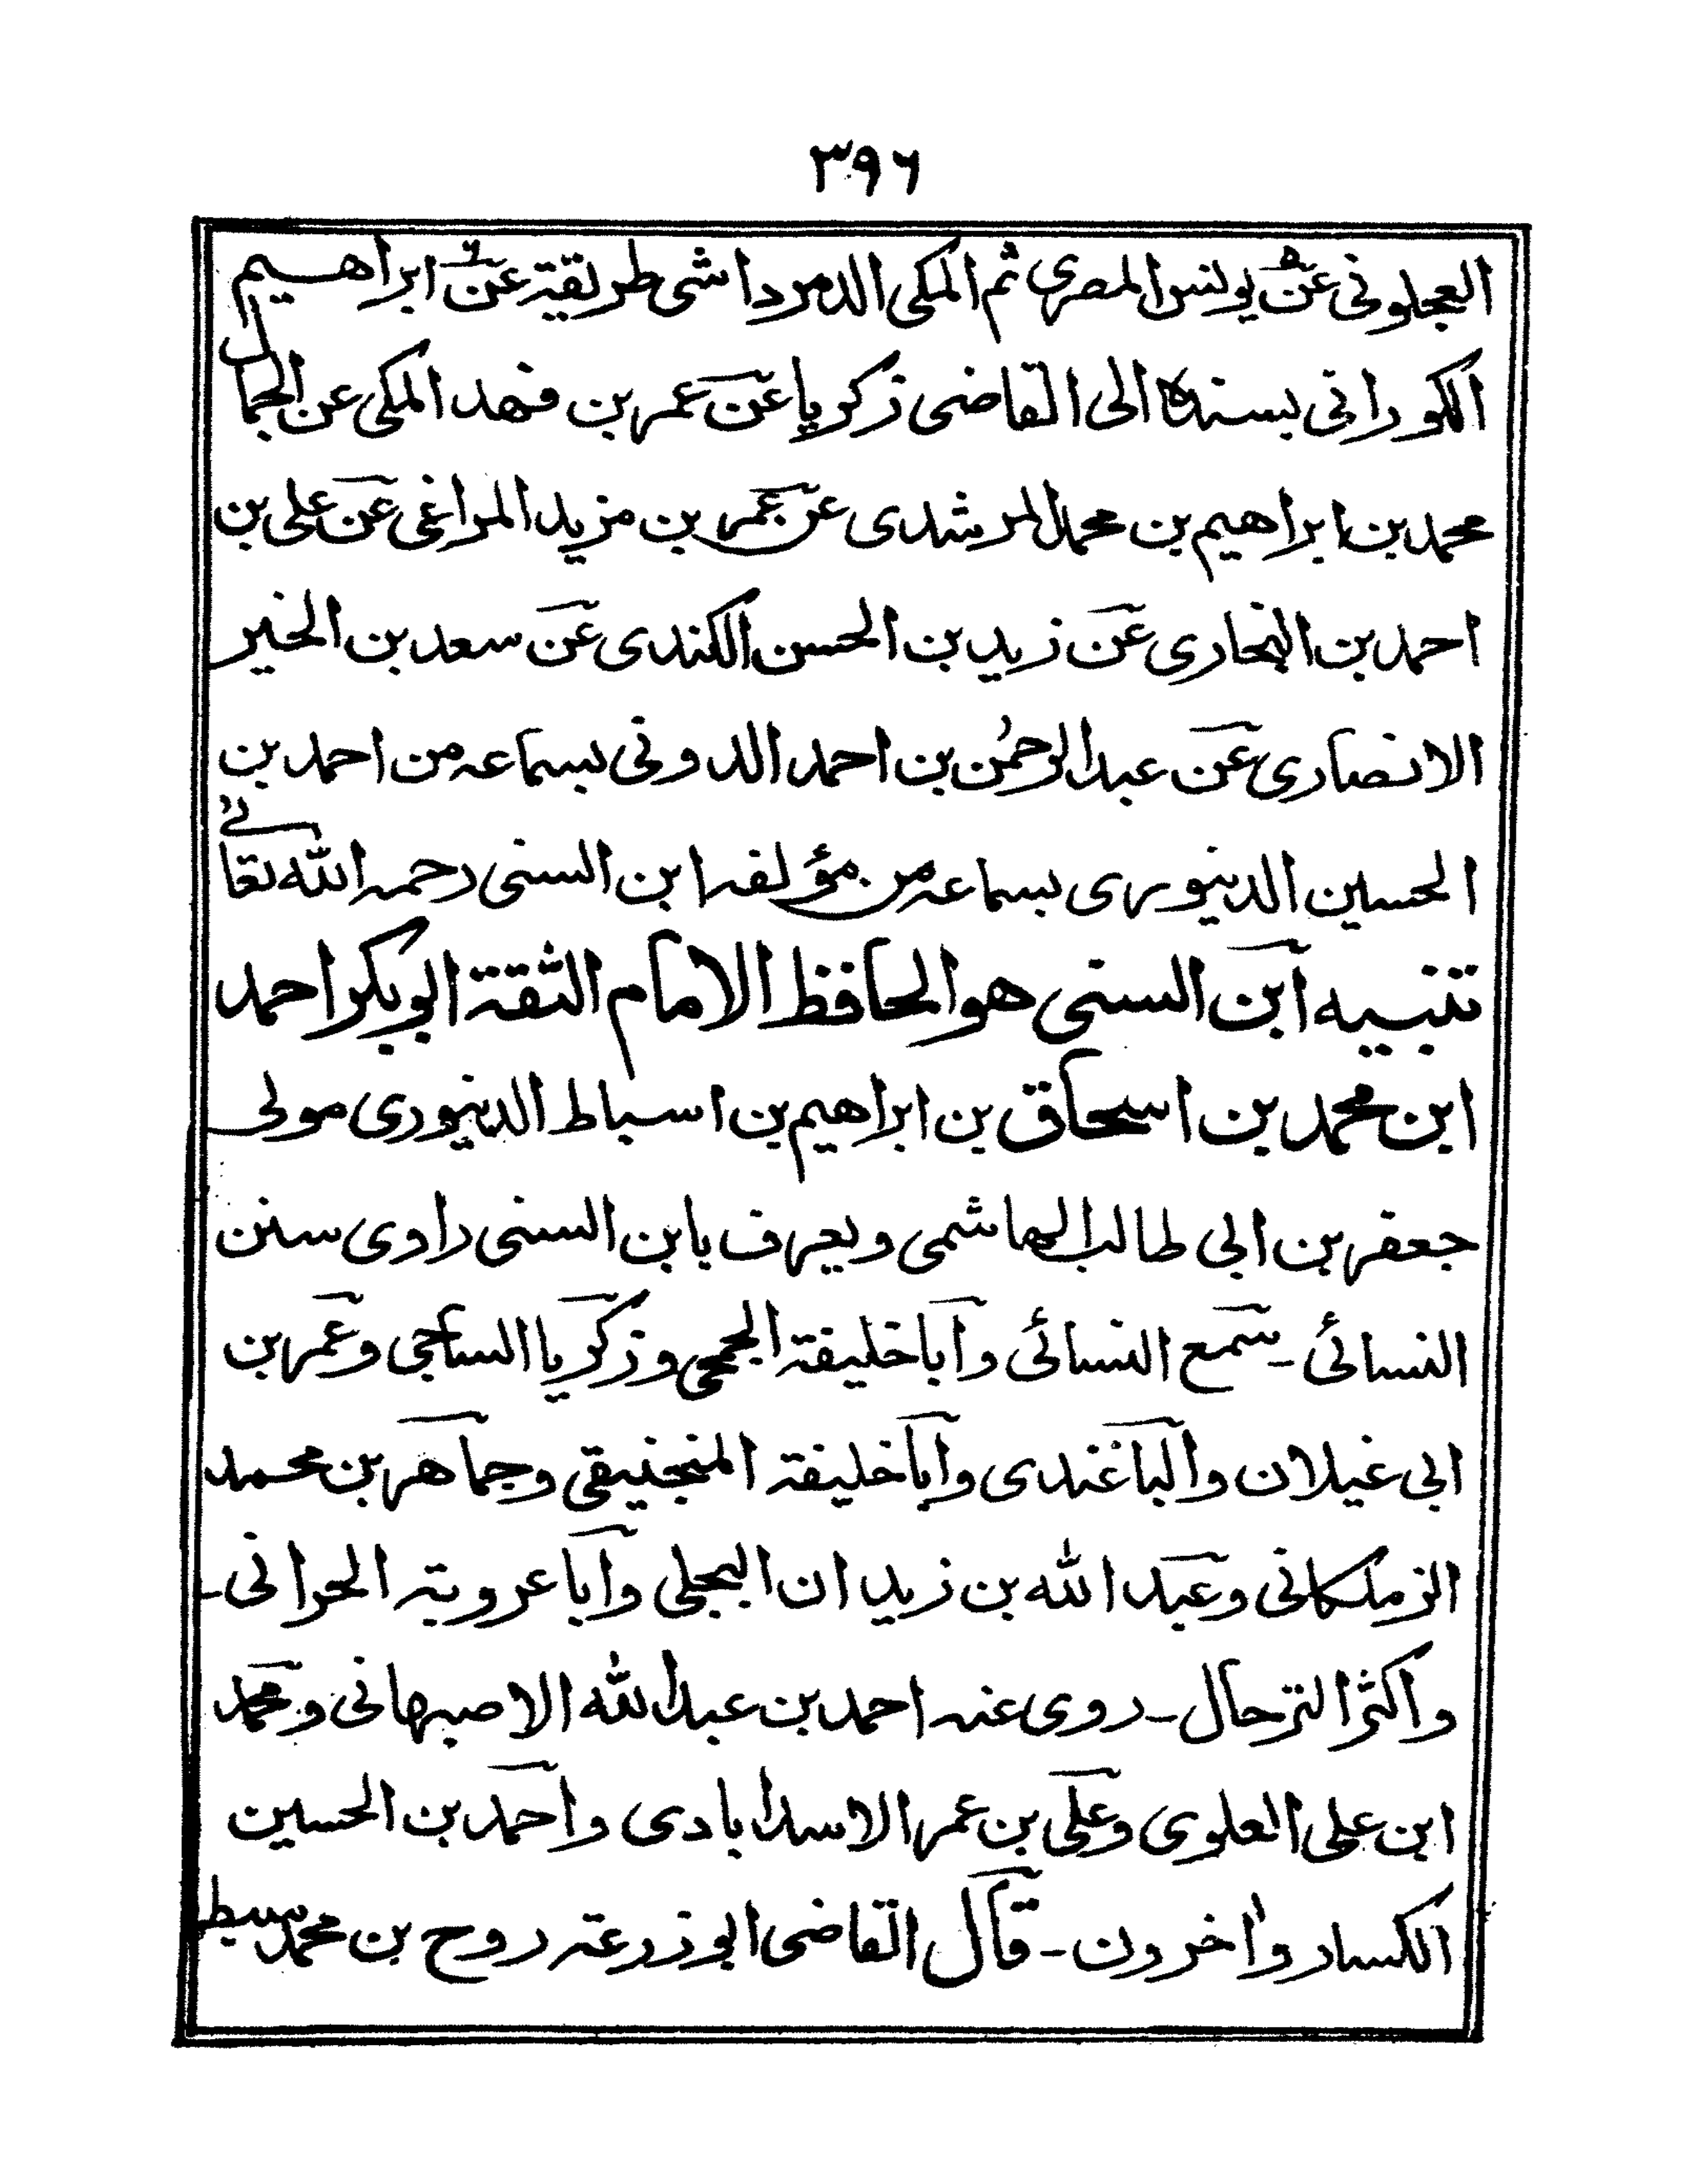 ٣٩٦
العجلونى عن يونس المصرى ثم المكى الدمرداشى طريقة عن ابراهيم
الكورانى بسنده الى القاضى زكريا عن عمر بن فهد المكى عن الجمال
محمد بن ابراهيم بن محمد المرشدى عن عمر بن مزيد المراغى عن على بن
احمد بن البخارى عن زيد بن الحسن الكندى عن سعد بن الخير
الانصارى عن عبد الرحمٰن بن احمد الدونى بسماعه من احمد بن
الحسين الدينورى بسماعه من مؤلفه ابن السنى رحمه الله تعالىٰ
تنبيه ابن السنى هو الحافظ الامام الثقة ابو بكر احمد
ابن محمد بن اسحاق بن ابراهيم بن اسباط الدينورى مولى
جعفر بن ابى طالب الهاشمى ويعرف بابن السنى راوى سنن
النسائى ـ سمع النسائى وابا خليفة الجمحى وزكريا الساجى وعمر بن
ابى غيلان والباغندى وابا خليفة المنجنيقى وجماهر بن محمد
الزملكانى وعبد الله بن زيد ان البجلى وابا عروبة الحرانى ـ
واكثر الترحال ـ روى عنه احمد بن عبد الله الاصبهانى ومحمد
ابن على العلوى وعلى بن عمر الاسدابادى واحمد بن الحسين
الكسار واٰخرون ـ قال القاضى ابو زرعة روح بن محمد سبط